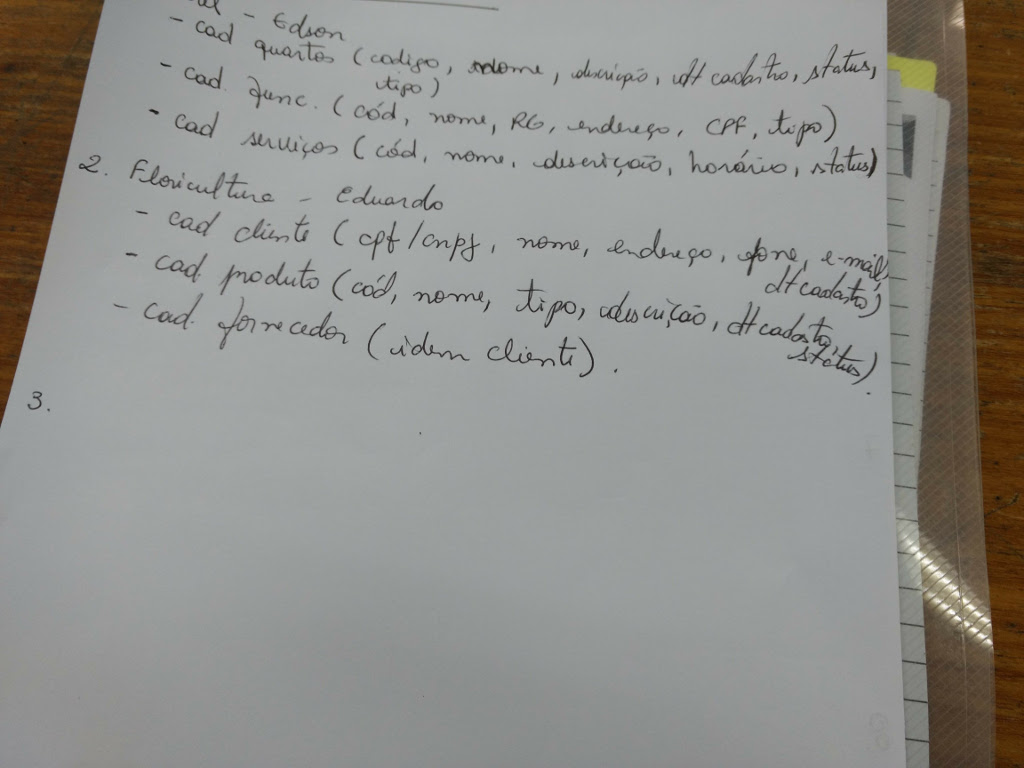 - Edson
- cad quartos (codigo, nome, descrição, dt cadastro, status,
tipo)
- cad. func. (cód, nome, RG, endereço, CPF, tipo)
- cad serviços (cód, nome, descrição, horário, status)
2. Floricultura - Eduardo
- cad cliente (cpf/cnpj, nome, endereço, fone, e-mail,
dt cadastro)
- cad. produto (cód, nome, tipo, descrição, dt cadastro,
status)
- cad. fornecedor (idem cliente).
3.